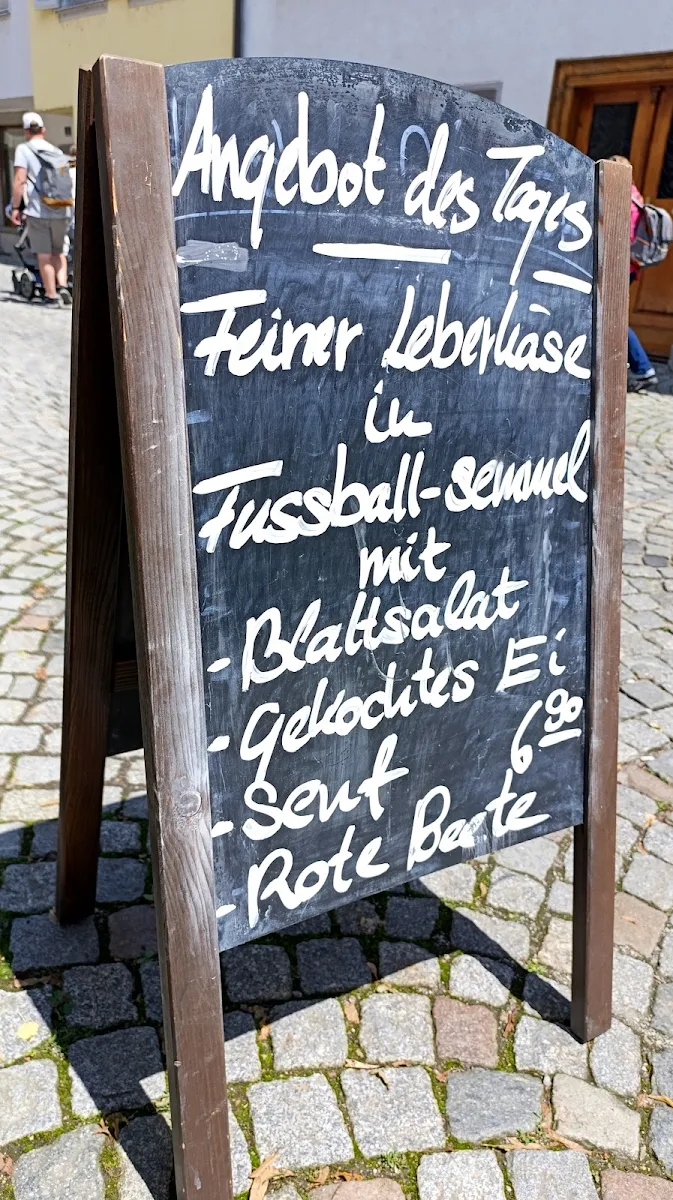 Angebot des Tages
Feiner Leberkäse
in
Fussball-semmel
mit
- Blattsalat
- Gekochtes Ei
- Senf 6 90
- Rote Beete